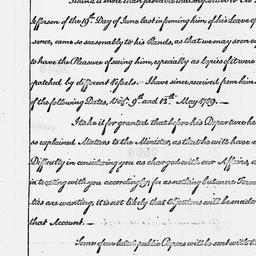 Jefferson of the 19th Day of June last informing him of his Leave of
sence, came so seasonably to his Hands, as that we may soon ex
to have the Pleasure of seeing him, especially as Copies of it were
patched by different Vessels. I have since received from him
of the following Dates, Viz. 9th and 12th May 1789.
I take it for granted that before his Departure he
so explained Matters to the Minister, as that he will have n
Difficulty in considering you as charged with our Affairs, a
in treating with you accordingly; for as nothing but mere Form
ties are wanting, it is not likely that Objections will be made
that Account.
Some of our latest public Papers will be sent with th